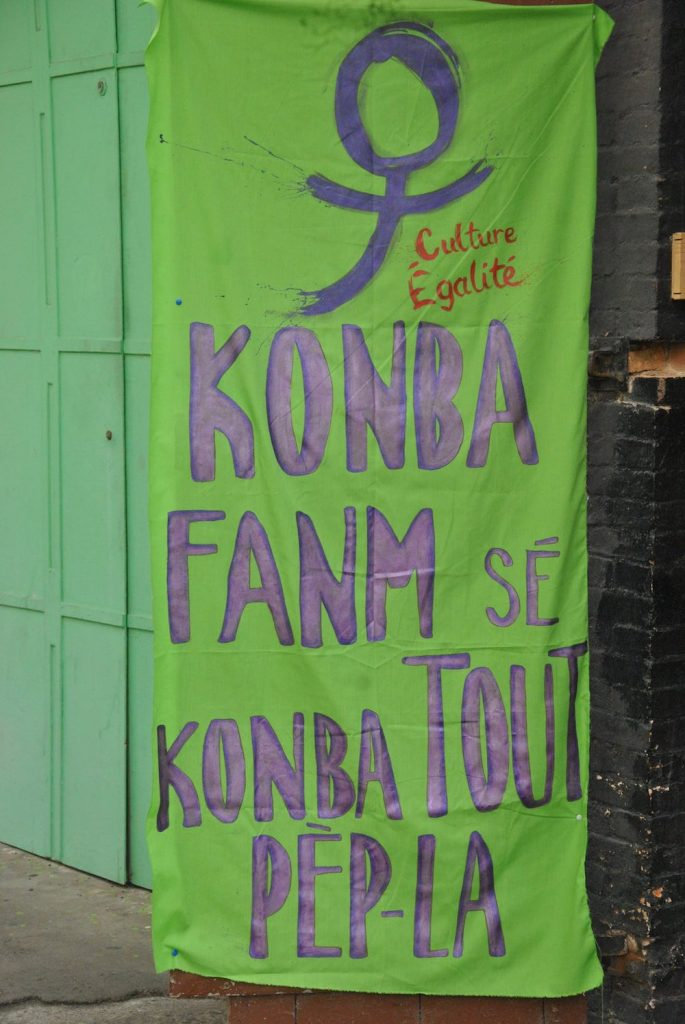 Culture
Égalité
KONBA
FANM SÉ
KONBA TOUT
PÈP-LA